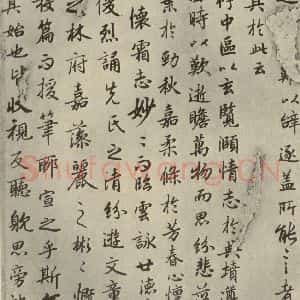 以辞逮盖所能言者
具於此云
佇中區以玄覽頤情志於典墳遵
四時以歎逝瞻萬物而思紛悲落
葉於勁秋嘉柔條於芳春心懍
懷霜志妙〻而臨雲詠世德
俊烈誦先民之清紛遊文章
之林府嘉藻麗之彬〻慨
投篇而援筆聊宣之乎斯
其始也皆收視反聽躭思傍
Shufawang.CN